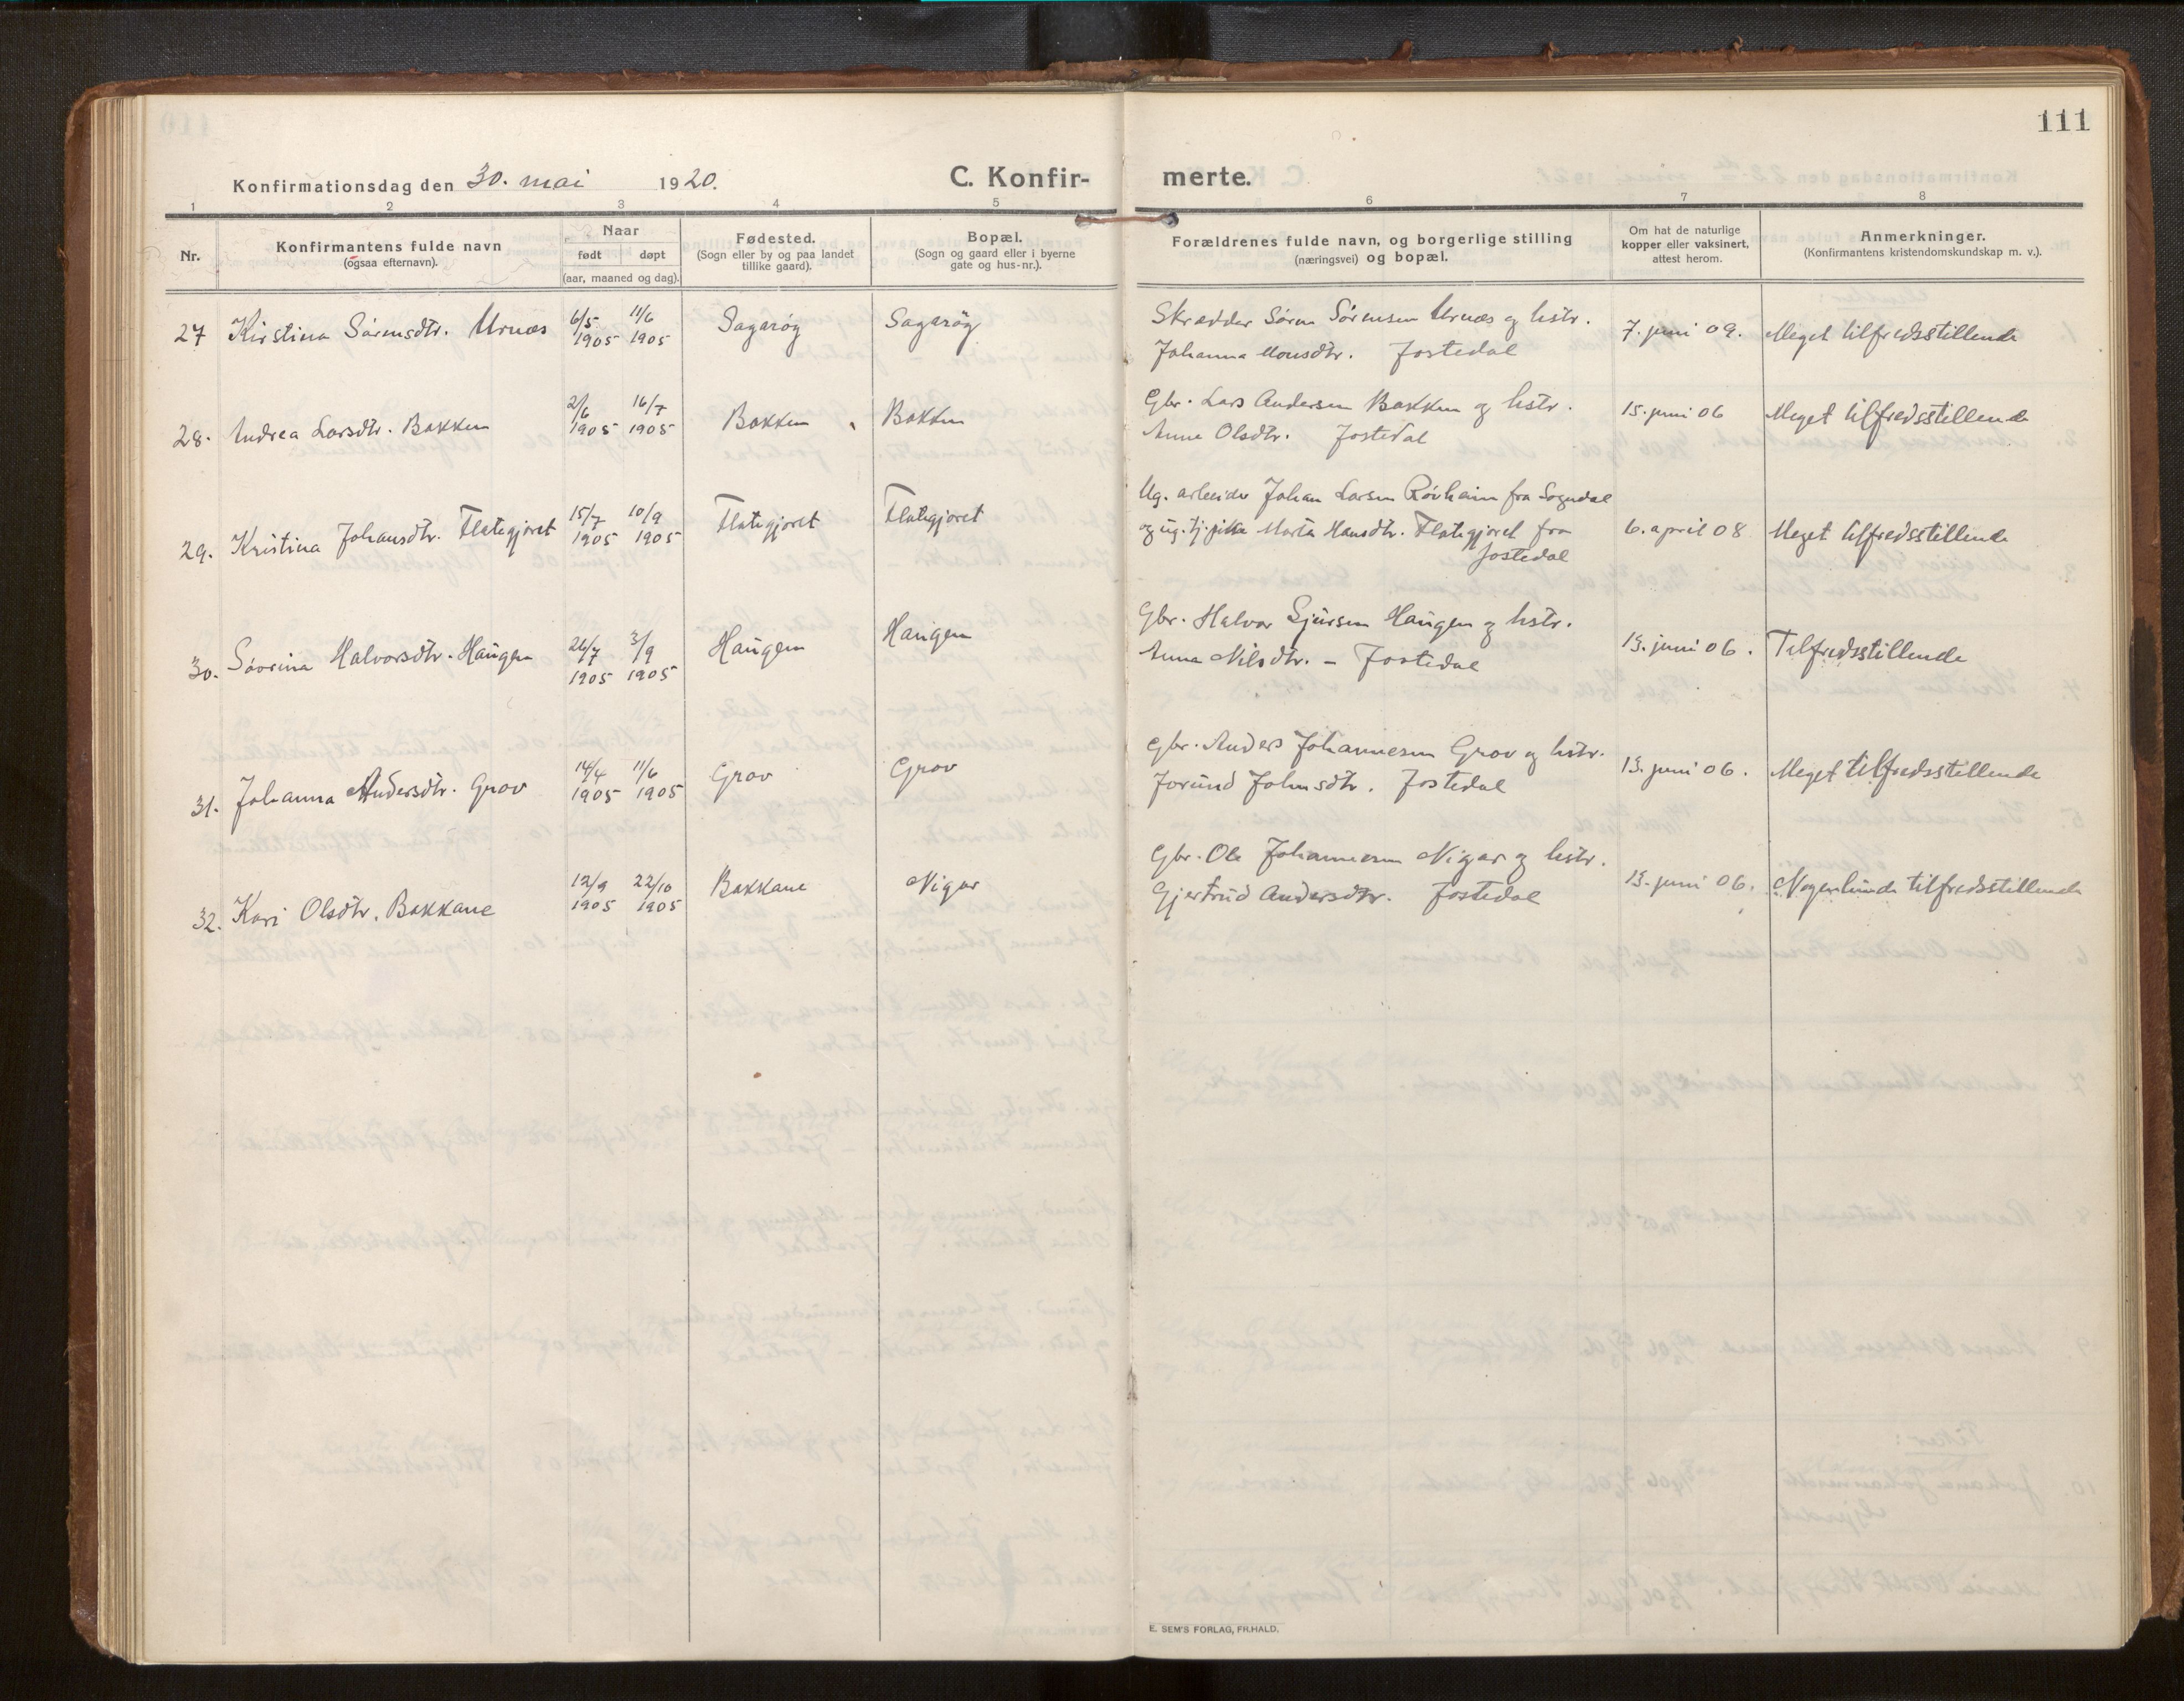 111
Konfirmationsdag den 30. mai 1920.
C. Konfir-
merte.
1 2 3 4 5 6 7 8
Nr.
Konfirmantens fulde navn
(ogsaa efternavn).
Naar
født døpt
(aar, maaned og dag).
Fødested.
(Sogn eller by og paa landet
tillike gaard).
Bopæl.
(Sogn og gaard eller i byerne
gate og hus-nr.).
Forældrenes fulde navn, og borgerlige stilling
(næringsvei) og bopæl.
Om hat de naturlige
kopper eller vaksinert,
attest herom.
Anmerkninger.
(Konfirmantens kristendomskundskap m. v.).
27 Kirstina Sørensdtr. Urnæs 6/5 1905 11/6 1905 Sagarøg Sagarøg Skrædder Søren Sørensen Urnæs og hstr.
Johanna Monsdtr. Jostedal 7. juni 09. Meget tilfredsstillende
28. Andrea Larsdtr. Bakken 2/6 1905 16/7 1905 Bakken Bakken Gbr. Lars Andersen Bakken og hstr.
Anne Olsdtr. Jostedal 15. juni 06 Meget tilfredsstillende
29. Kristina Johansdtr. Flategjøret 15/7 1905 10/9 1905 Flategjøret Flategjøret Ug. arbeider Johan Larsen Røvheim fra Sogndal
og ug. tj. pike Marta Hansdtr. Flategjøret fra
Jostedal 6. april 08 Meget tilfredsstillende
30. Søvrina Halvorsdtr. Haugen 26/7 1905 3/9 1905 Haugen Haugen Gbr. Halvor Sjursen Haugen og hstr.
Anna Nilsdtr. - Jostedal 13. juni 06. Tilfredsstillende
31. Johanna Andersdtr. Grov 14/4 1905 11/6 1905 Grov Grov Gbr. Anders Johannesen Grov og hstr.
Jorund Johnsdtr. Jostedal 13. juni 06. Meget tilfredsstillende
32. Kari Olsdtr. Bakkane 12/9 1905 22/10 1905 Bakkane Nigar Gbr. Ole Johannesen Nigar og hstr.
Gjertrud Andersdtr. Jostedal 13. juni 06. Nogenlunde tilfredsstillende
E. SEM'S FORLAG, FR.HALD.